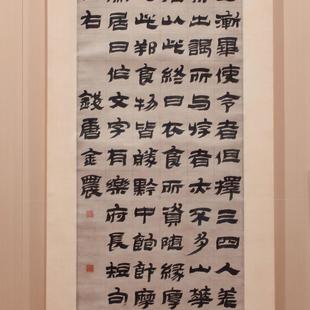 漸畢使令者但擇三四人差
出謁所与游者亦不多山華
以此終日衣食所資随緣厚
此食物皆勝黔中飽飰摩
居日作文字有樂府長短句
右
錢唐金農